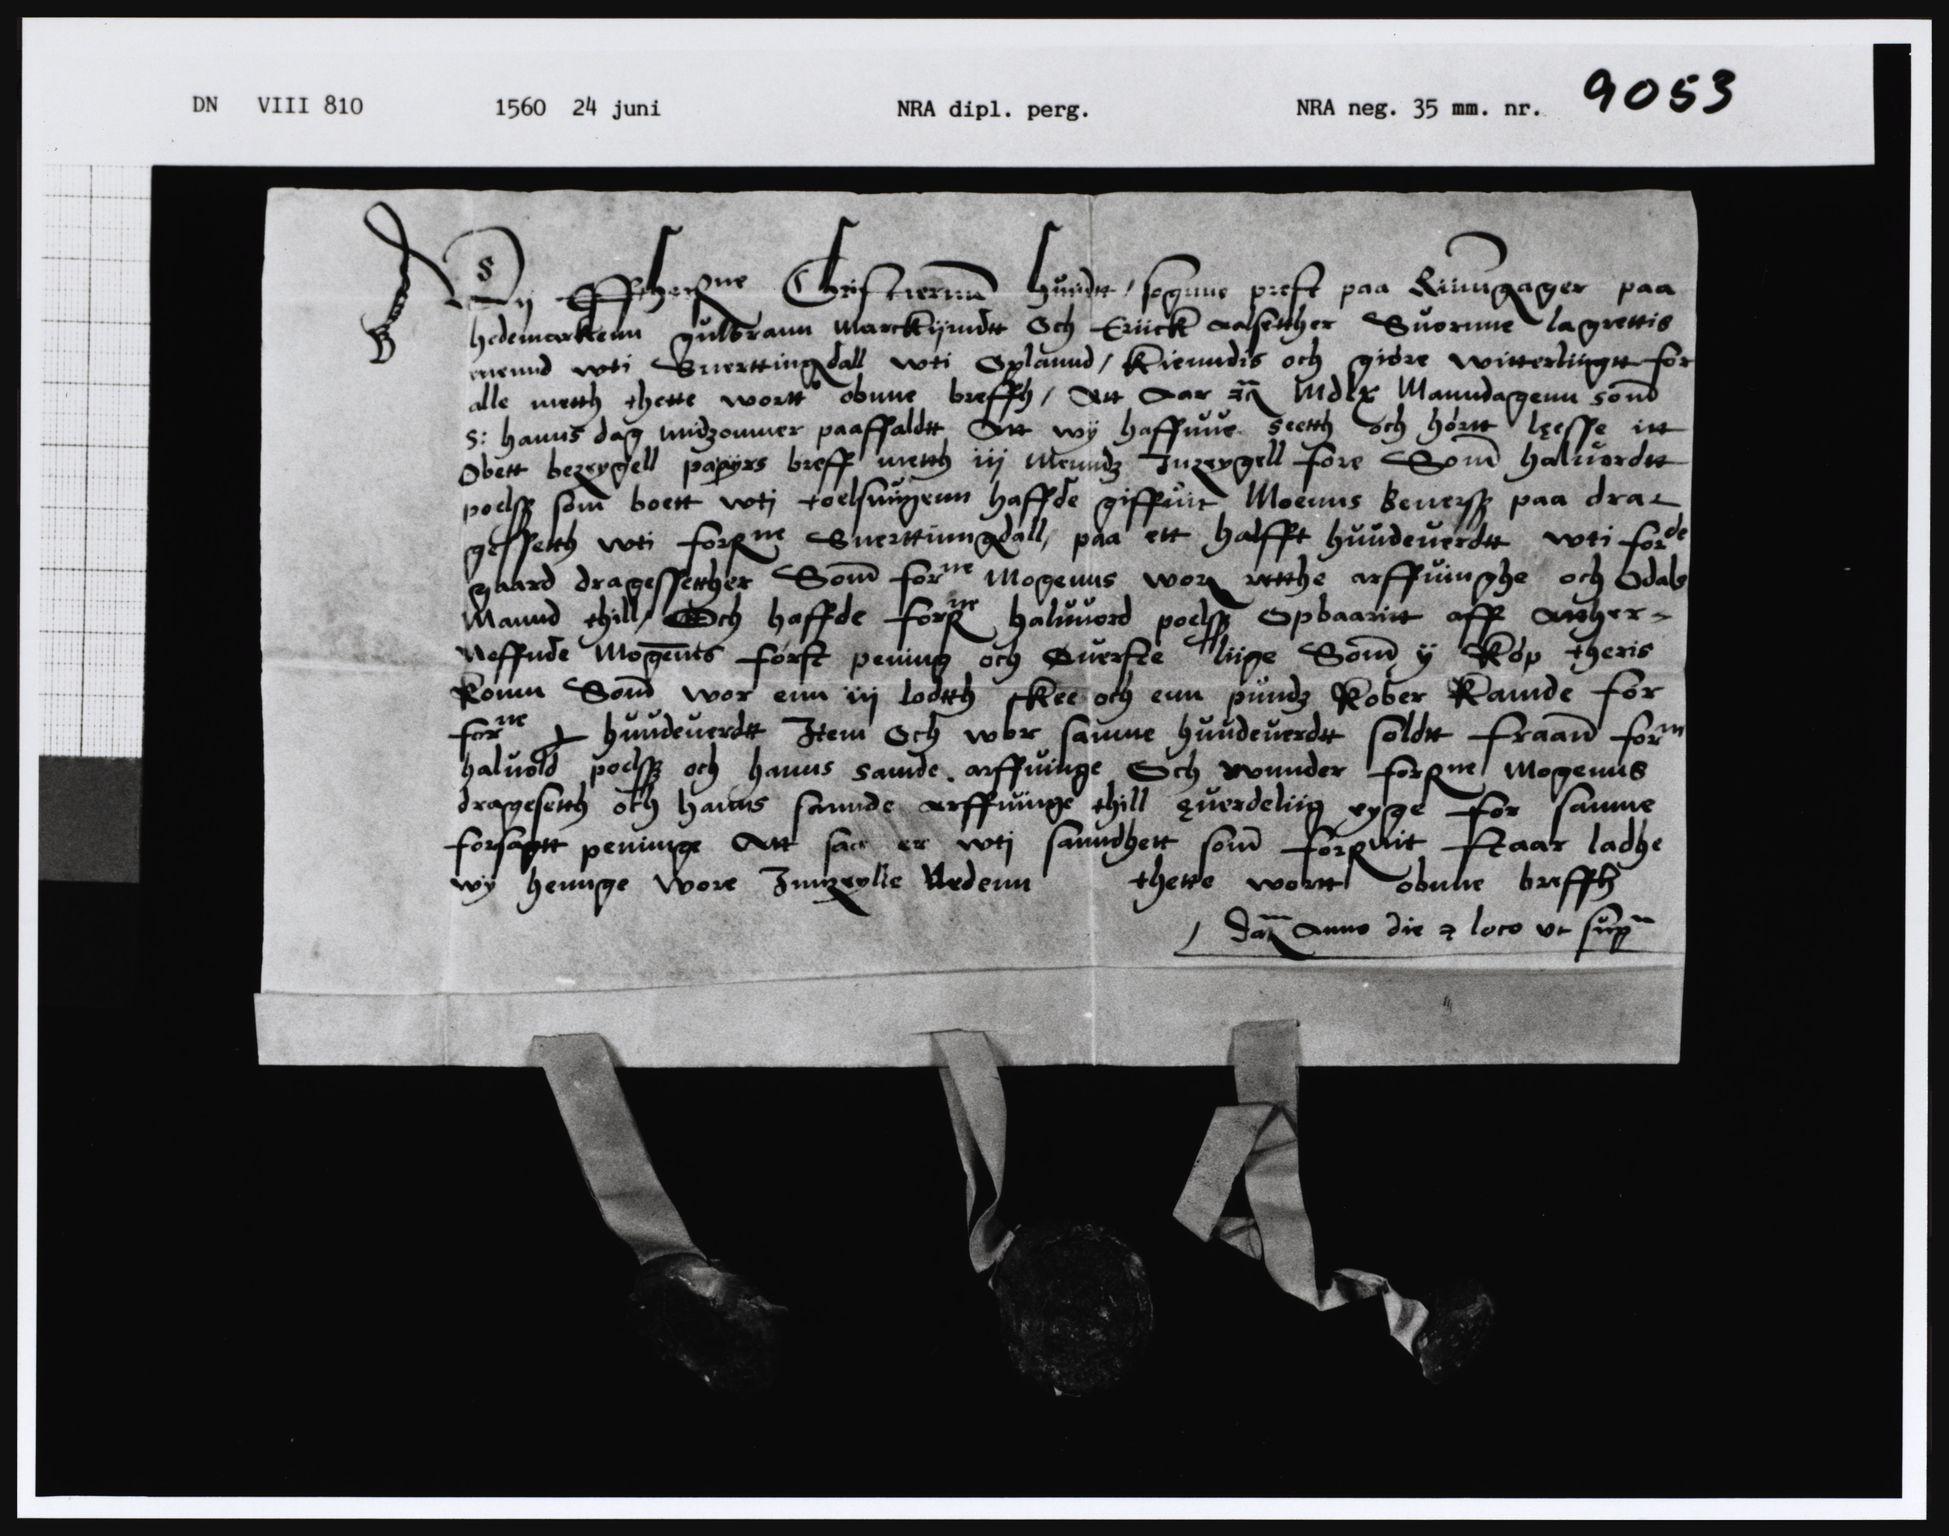 DN VIII 810 1560 24 juni NRA dipl. perg. NRA neg. 35 mm. nr. 9053
Wij Effther^ne Christiernn hundtt / sognne prest paa Riinngager paa
hedemarkenn gulbrann Marckijundtt Och Eriick aalsetther Suornne lagrettis
mennd wti Snerttingdall wti Oplannd / Kienndis och giöre witterliigtt for
alle metth thette wortt obnne breffh / Att Aar MdLx Manndagenn som
S: hanns dag midzommer paaffaldtt Att wij haffuue seetth och hörtt lęesse itt
Obett bezeygell papijrs breff metth iij Menndz Inzeygell fore Som haluordtt
poelss som boett wtj haffde giffuit Moenns paa dra-
gessetth wti for^ne Snerttinngdall, paa ett halfft huudeuerdtt wti for^de
gaard dragessetther Som for^ne Mogenns wor retthe arffuinghe och Odals
Mannd thill / Och haffde for^ne haluuord poelss Opbaaritt aff
Neffnde Mogenns först pening och Öuerste Som ij Köp theris
Komm Som wor enn iij lodtth skee och enn pundz Kober Kannde for
for^ne huudeuerdtt Item Och wor samme huudeuerdtt soldtt fraann for^ne
haluold poelss och hanns sande arffuinge Och wnnder for^ne Mogenns
dragesetth och hanns sannde arffuinge thill ęuerdeliig eyge for samme
forsagtt peninnge Att saa er wtj sanndhett som staar ladhe
wij hennge wore Innzeylle Nedenn thette wortt obnne breffh
Dat Anno die loco vt sup^a